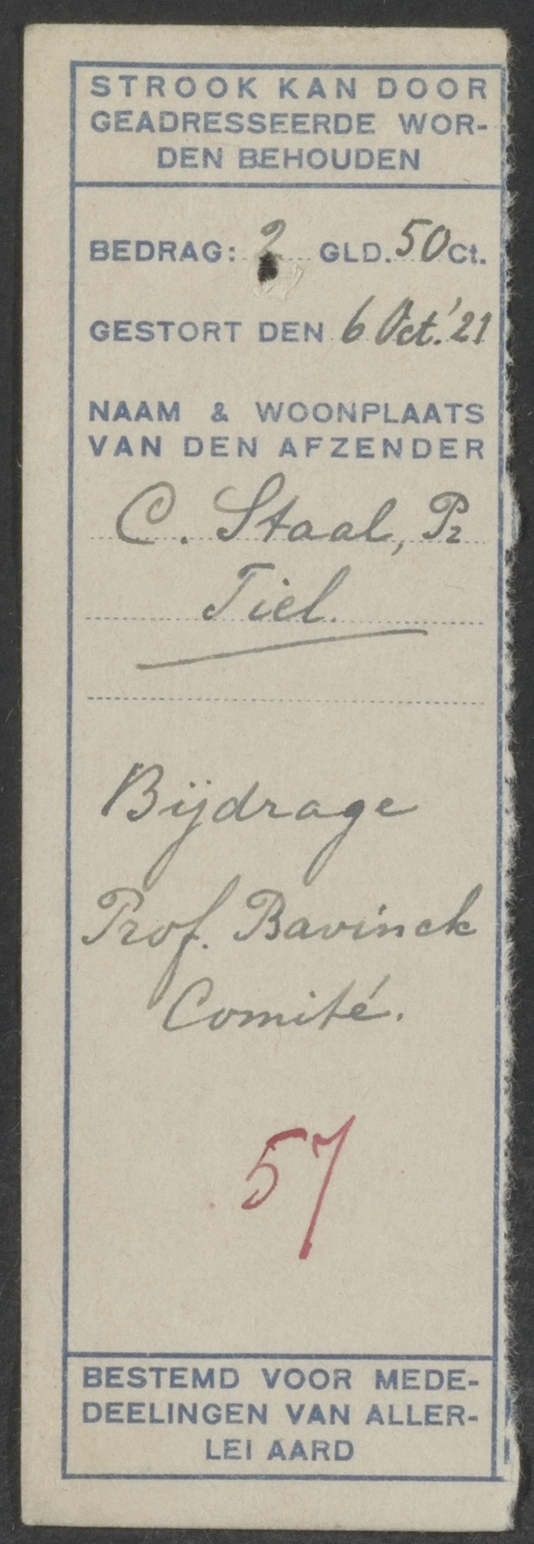 STROOK KAN DOOR
GEADRESSEERDE WOR-
DEN BEHOUDEN
BEDRAG: 2 GLD. 50 Ct.
GESTORT DEN 6 Oct. '21
NAAM & WOONPLAATS
VAN DEN AFZENDER
C. Staal, Pz
Tiel.
Bijdrage
Prof. Bavinck
Comité.
57
BESTEMD VOOR MEDE-
DEELINGEN VAN ALLER-
LEI AARD